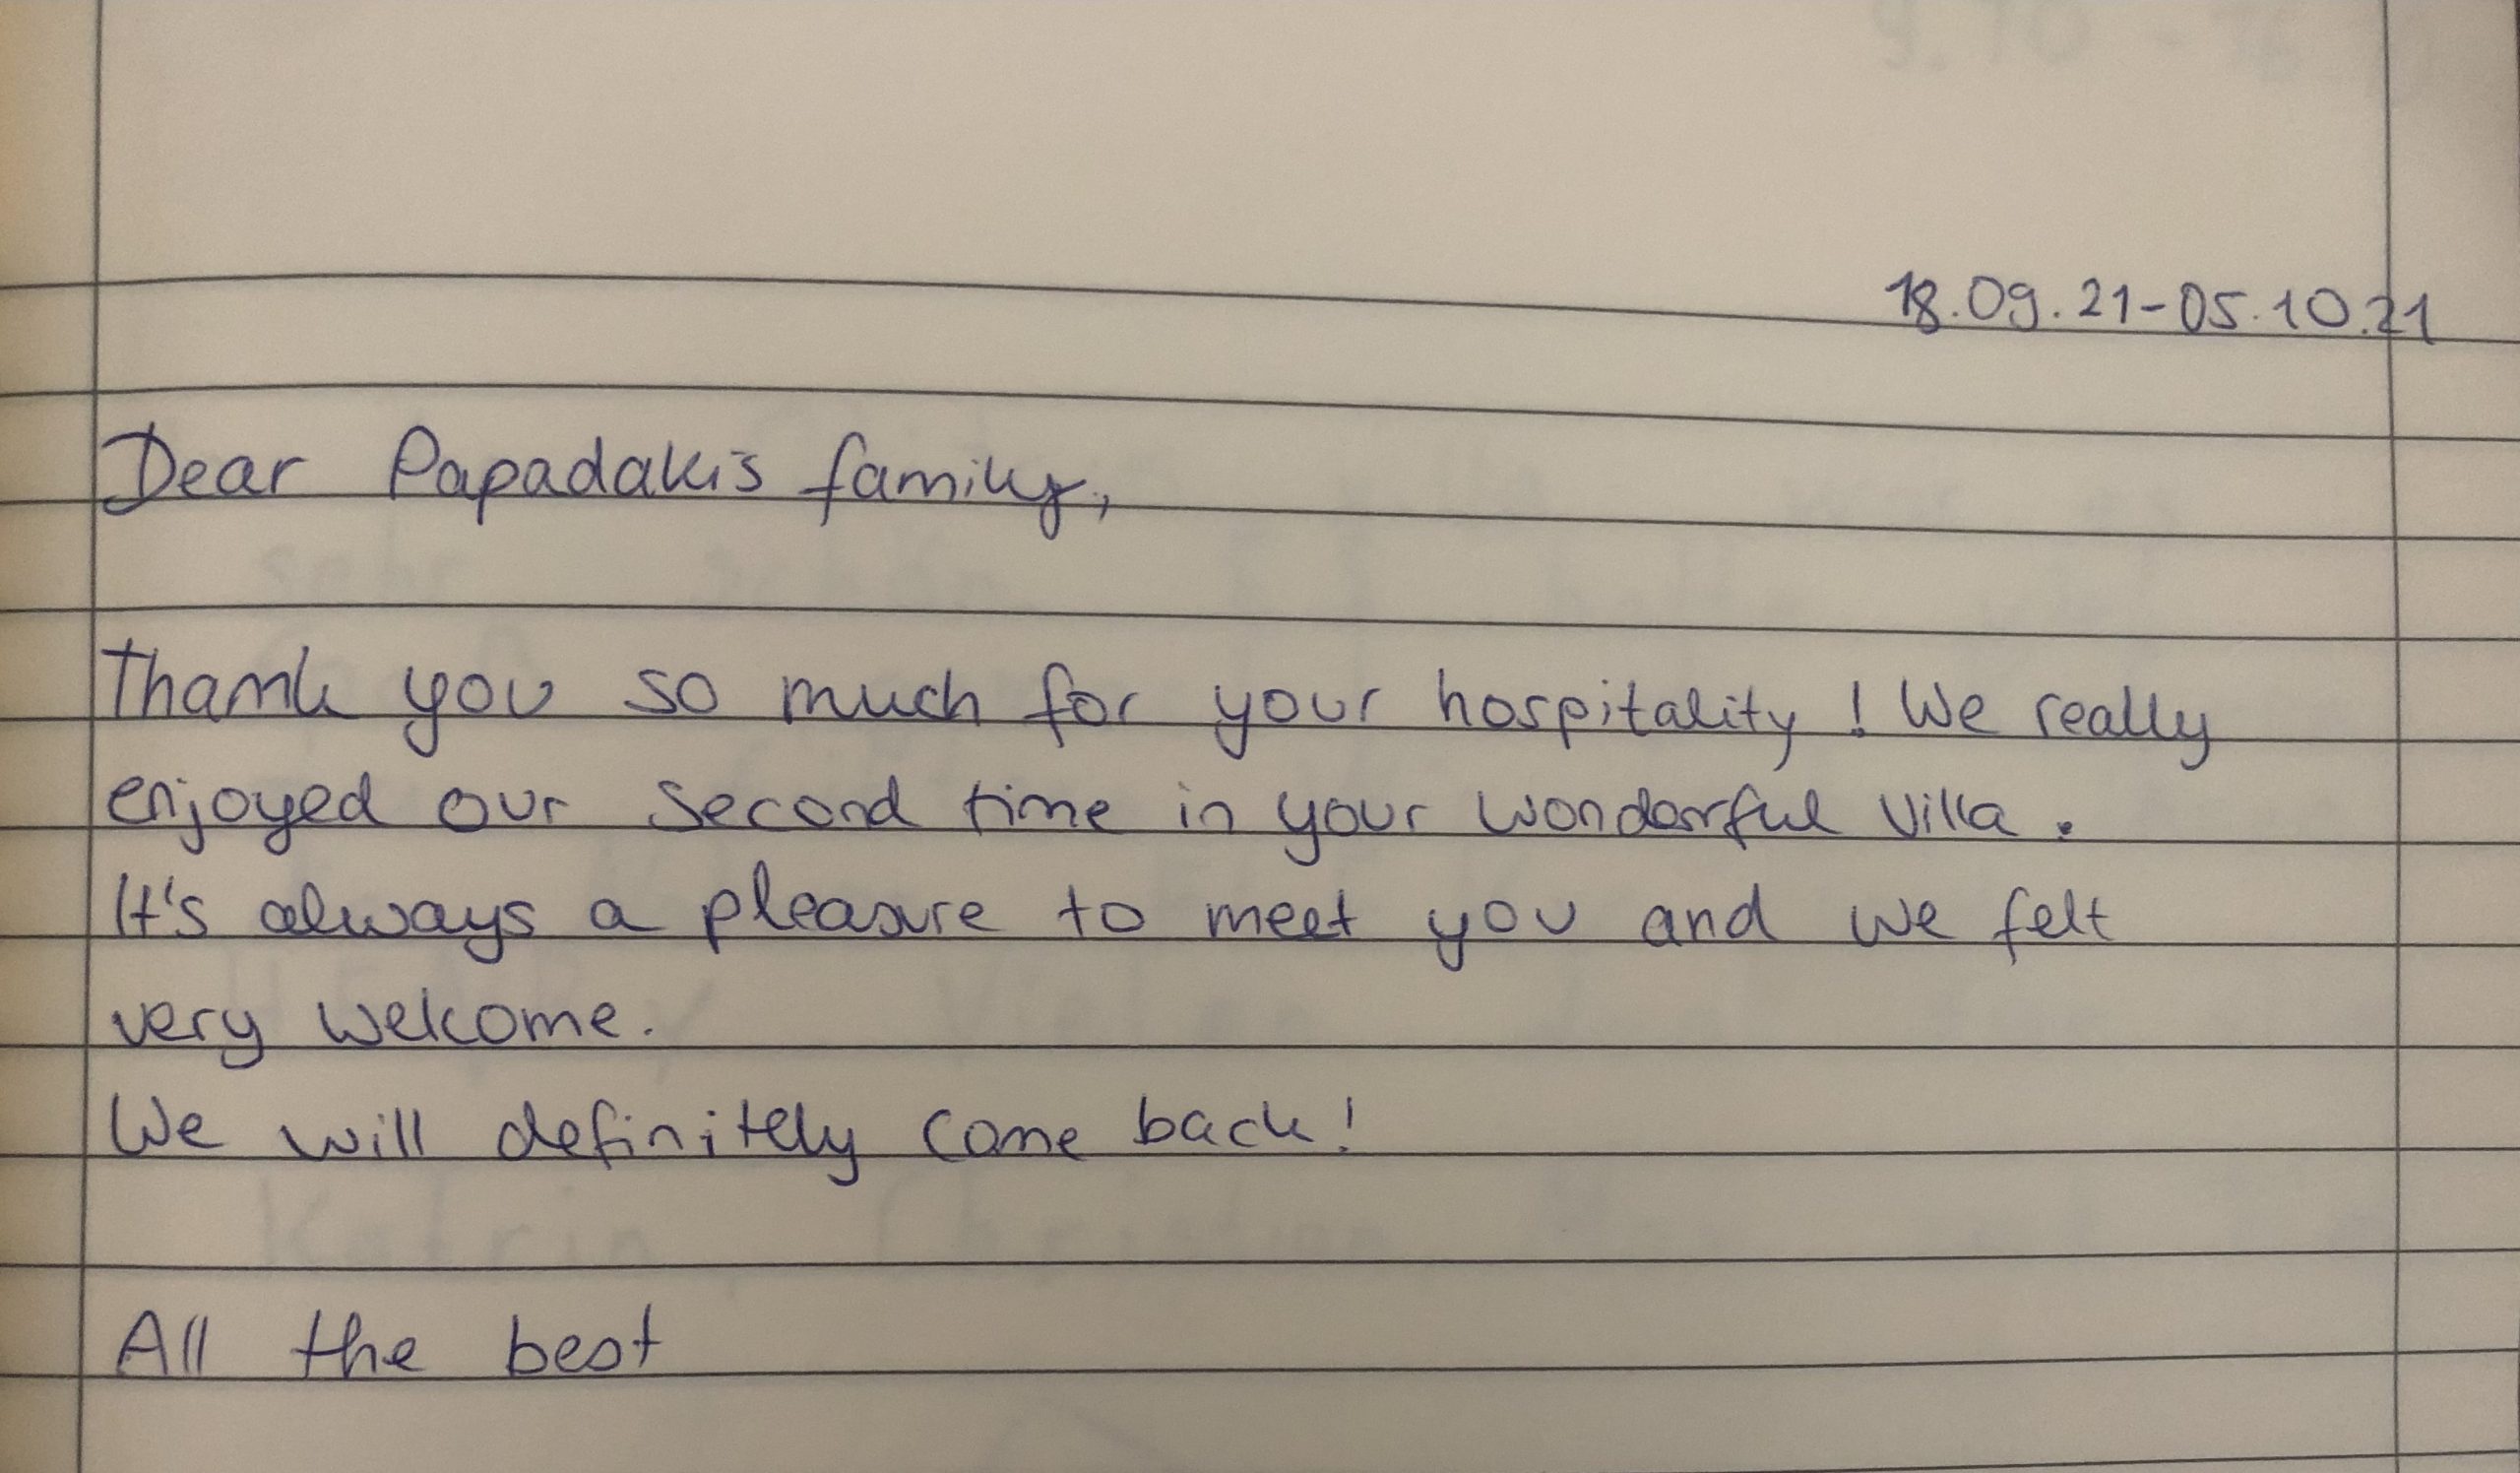 18.09.21-05.10.21
Dear Papadakis family,
Thank you so much for your hospitality! We really
enjoyed our second time in your wonderful Villa.
It's always a pleasure to meet you and we felt
very welcome.
We will definitely come back!
All the best